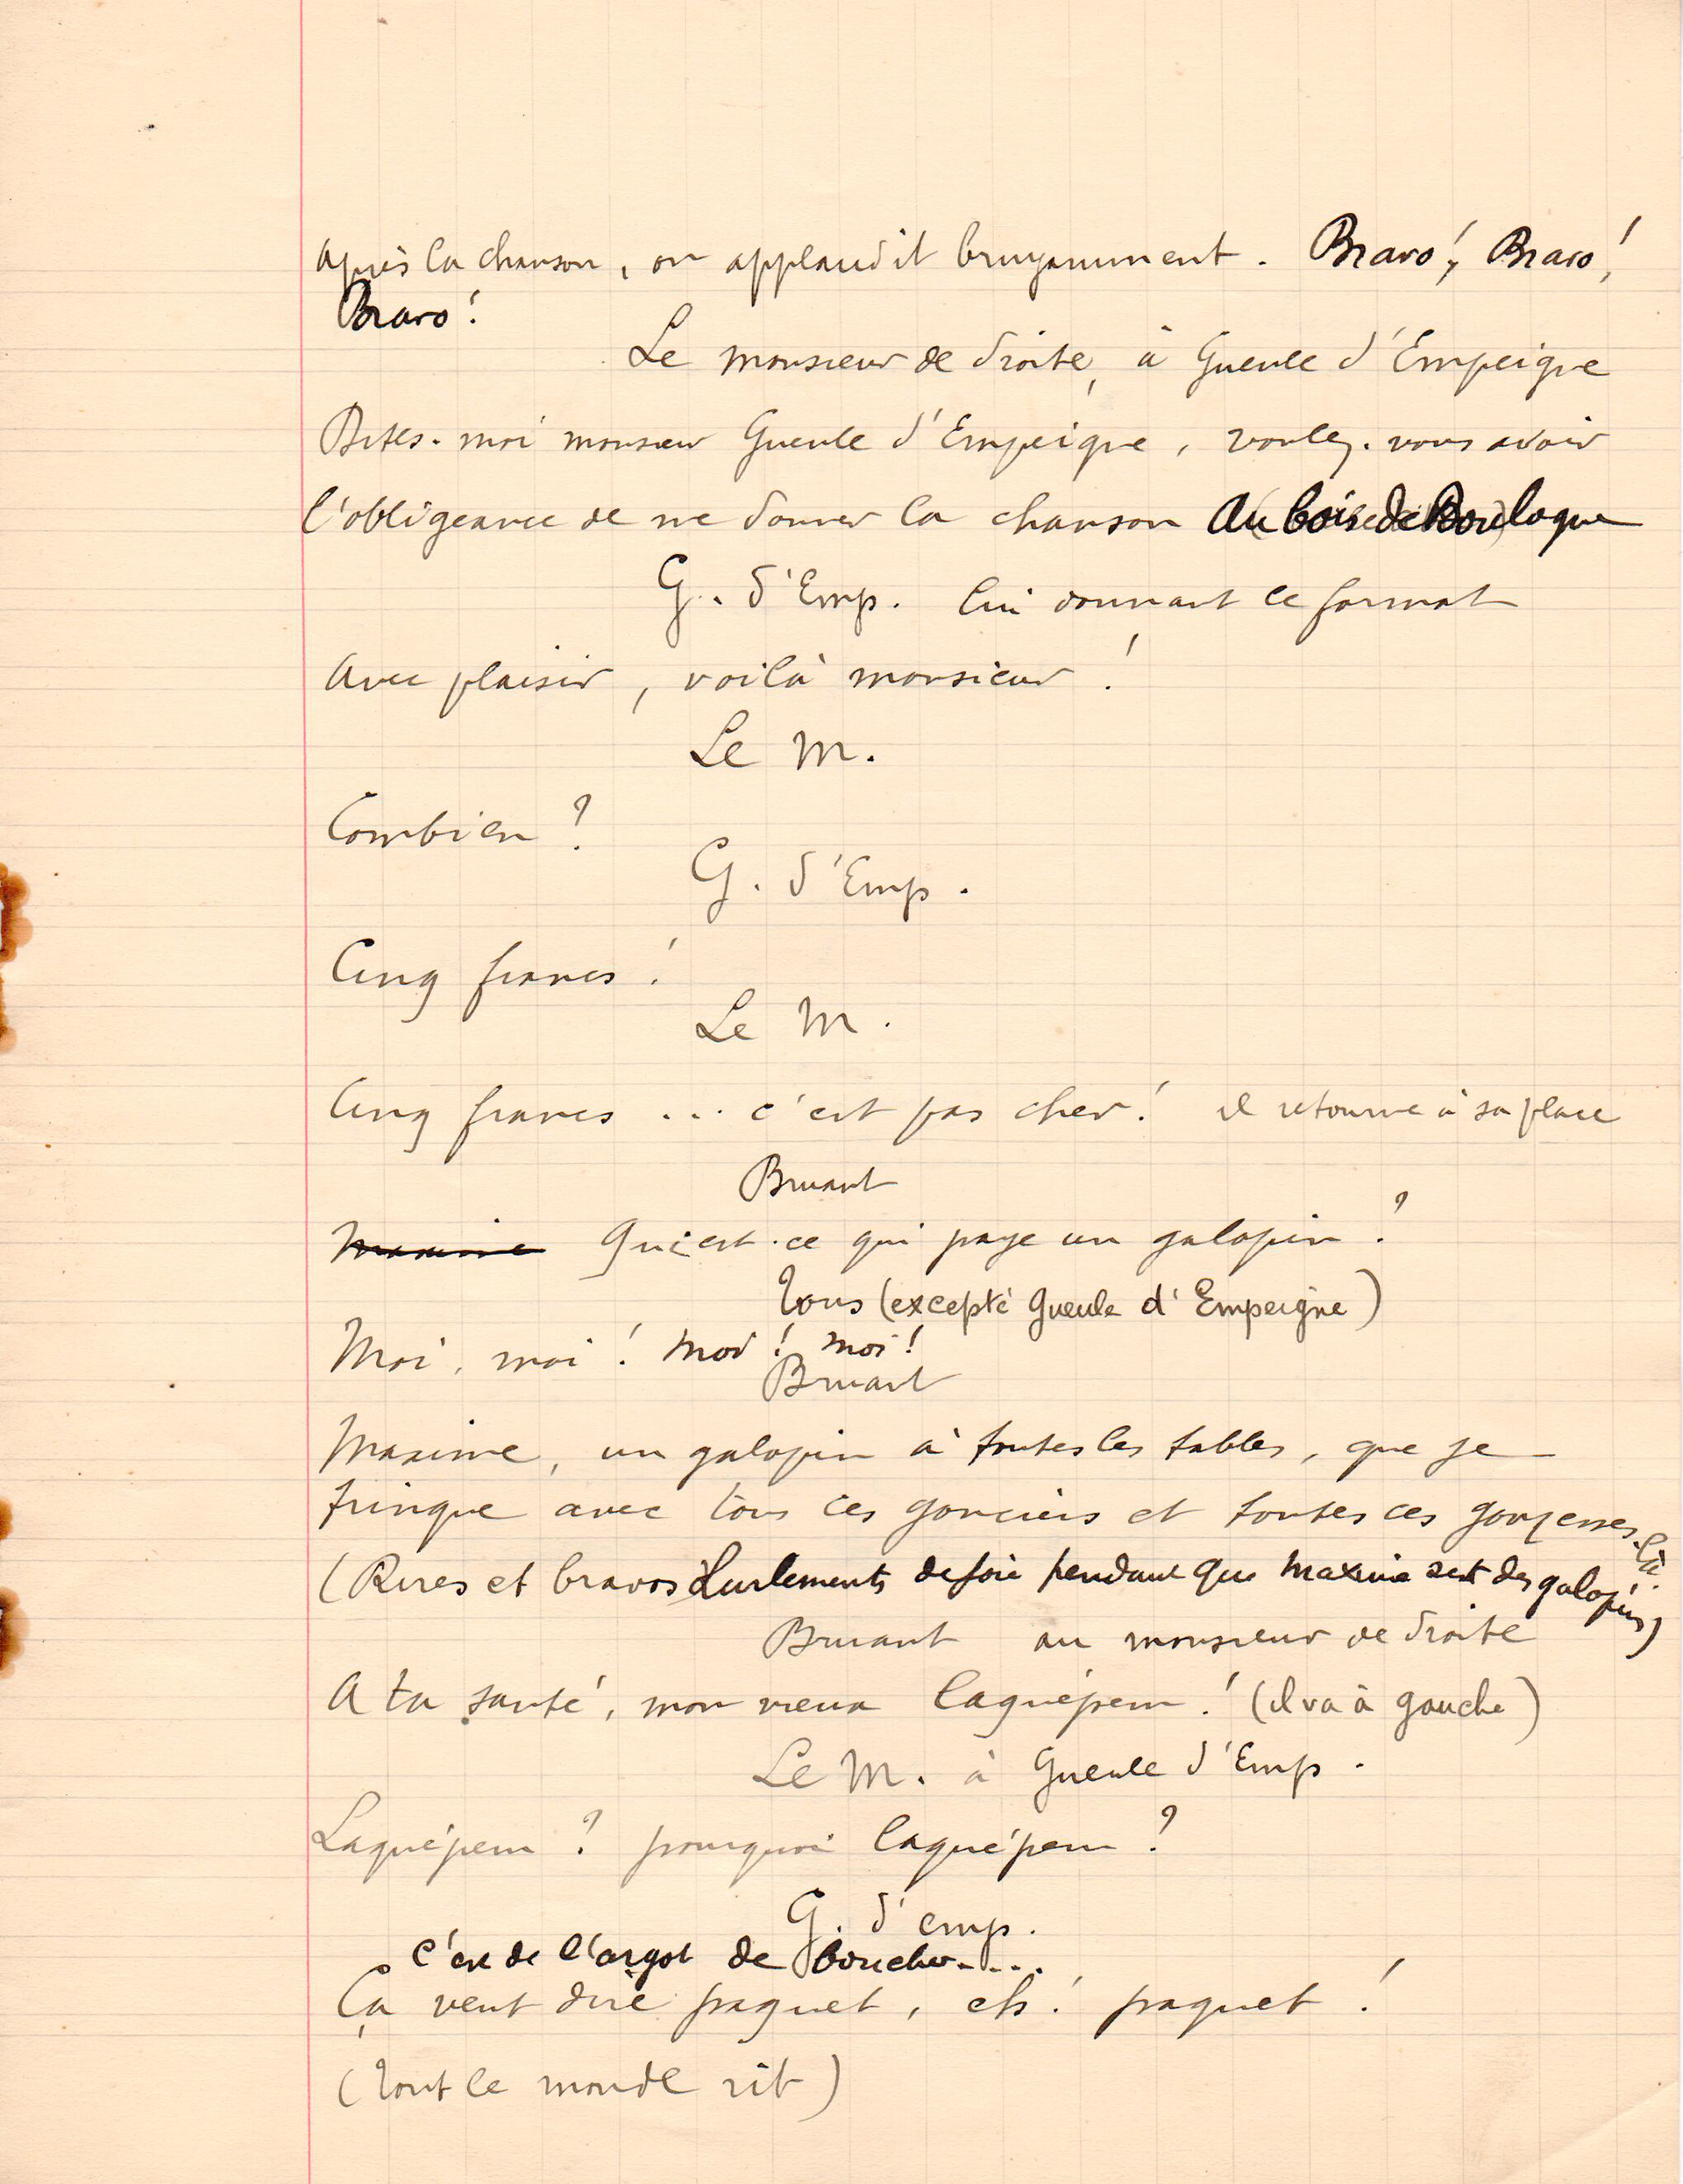 Après la chanson, on applaudit bruyamment. Bravo! Bravo!
Bravo!
Le monsieur de droite, à Gueule d'Empeigne
Dites-moi monsieur Gueule d'Empeigne, voulez-vous avoir
l'obligeance de me donner la chanson Au bois de Boulogne
G. d'Emp. lui donnant le format
Avec plaisir, voilà monsieur!
Le M.
Combien?
G. d'Emp.
Cinq francs!
Le M.
Cinq francs ... c'est pas cher! il retourne à sa place
Bruant
Maxime Qui est-ce qui paye un galopin?
Tous (excepté Gueule d'Empeigne)
Moi, moi! moi! moi!
Bruant
Maxime, un galopin à toutes les tables, que je
trinque avec tous ces gonciers et toutes ces gonzesses-là.
(Rires et bravos hurlements de joie pendant que Maxime sert des galopins)
Bruant au monsieur de droite
A ta santé, mon vieux laquépem! (il va à gauche)
Le M. à Gueule d'Emp.
Laquépem? pourquoi laquépem?
G. d'emp.
C'est de l'argot de boucher....
Ça veut dire paquet, eh! paquet!
(Tout le monde rit)